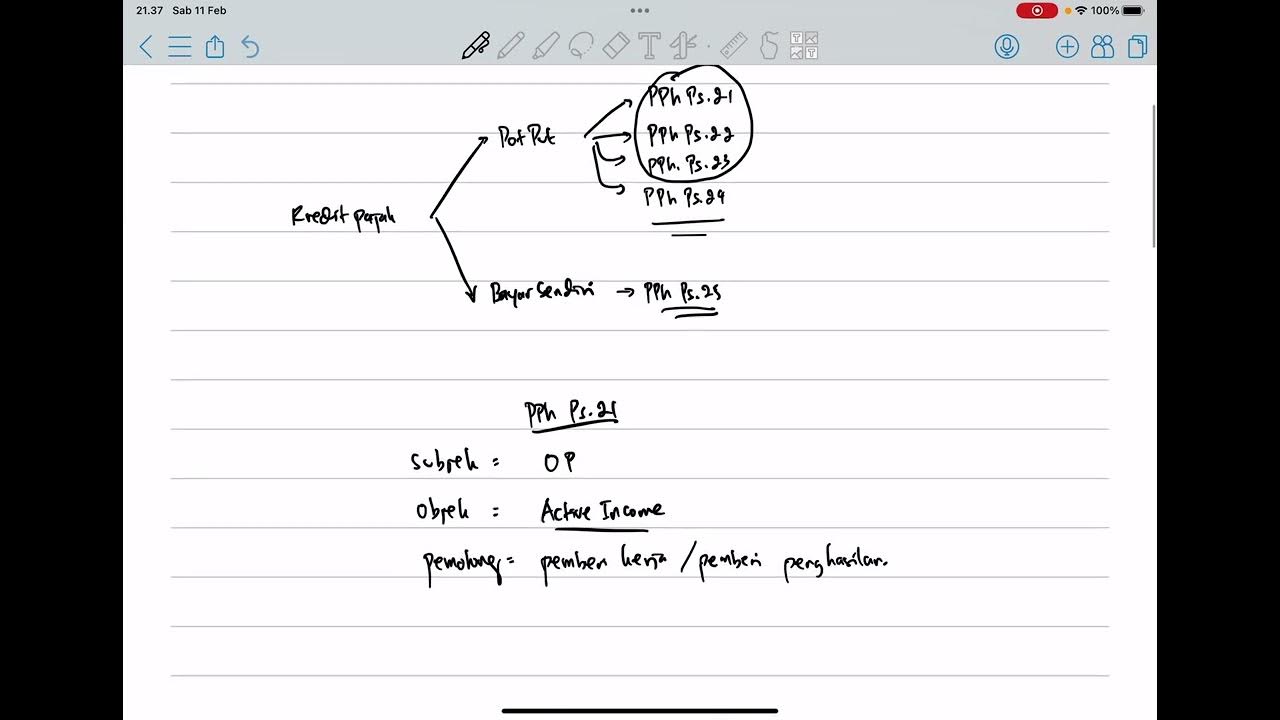 21.37 Sab 11 Feb
100%
PPh Ps.21
Pot Put
PPh Ps.22
PPh. Ps.23
PPh Ps.24
Kredit pajak
Bayar Sendiri → PPh Ps.25
PPh Ps.21
Subjek = OP
Objek = Active Income
pemotong = pemberi kerja / pemberi penghasilan.